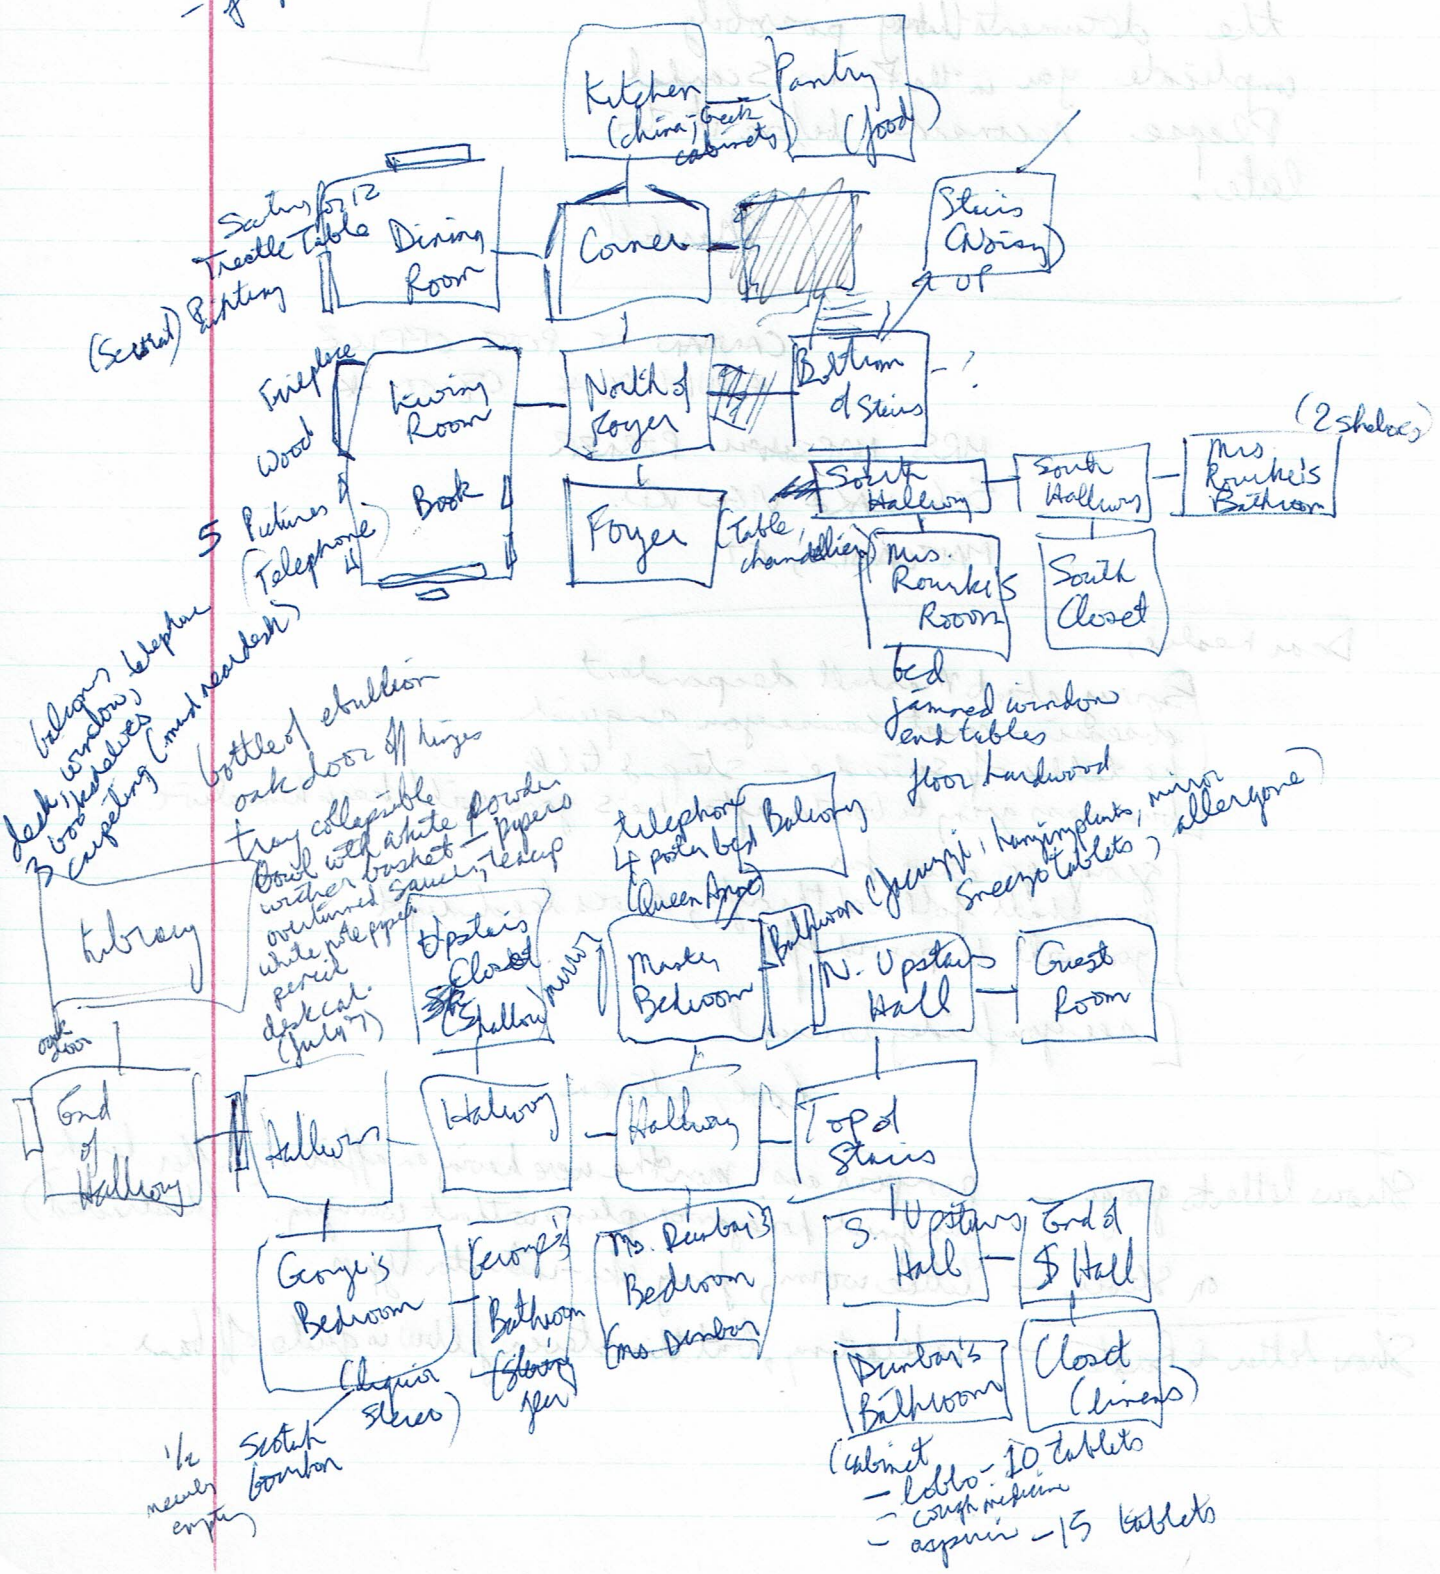 Kitchen
(china,
cabinets)
Pantry
(food)
Seating for 12
Trestle Table
(Several) Painting
Dining
Room
Corner
Stairs
(Noisy)
UP
Fireplace
Wood
5 Pictures
(Telephone)
Living
Room
Book
North of
Foyer
Bottom
of Stairs
- ?
Foyer
(Table,
chandelier)
South
Hallway
South
Hallway
(2 shelves)
Mrs
Rourke's
Bathroom
Mrs.
Rourke's
Room
South
Closet
bed
jammed window
end tables
floor hardwood
balcony, telephone
desk, window,
3 bookshelves
carpeting (mud near desk)
bottle of ebullion
oak door off hinges
tray collapsible
bowl with white powder
wicker basket - papers
overturned saucer, teacup
white note paper
pencil
desk cal.
(July 7)
Library
oak
door
Upstairs
Closet
(Shallow)
mirror
telephone
4 poster bed
(Queen Anne)
Balcony
Master
Bedroom
Bathroom (Jacuzzi, hanging plants, mirror
Sneezo tablets, allergone)
N. Upstairs
Hall
Guest
Room
End
of
Hallway
Hallway
Hallway
Hallway
Top of
Stairs
George's
Bedroom
(liquor
stereo)
Scotch
bourbon
1/2
nearly
empty
George's
Bathroom
(Shaving
gear
Ms. Dunbar's
Bedroom
(Ms Dunbar
S. Upstairs
Hall
End of
S Hall
Dunbar's
Bathroom
Closet
(linens)
(cabinet
- loblo - 10 tablets
- cough medicine
- aspirin - 15 tablets